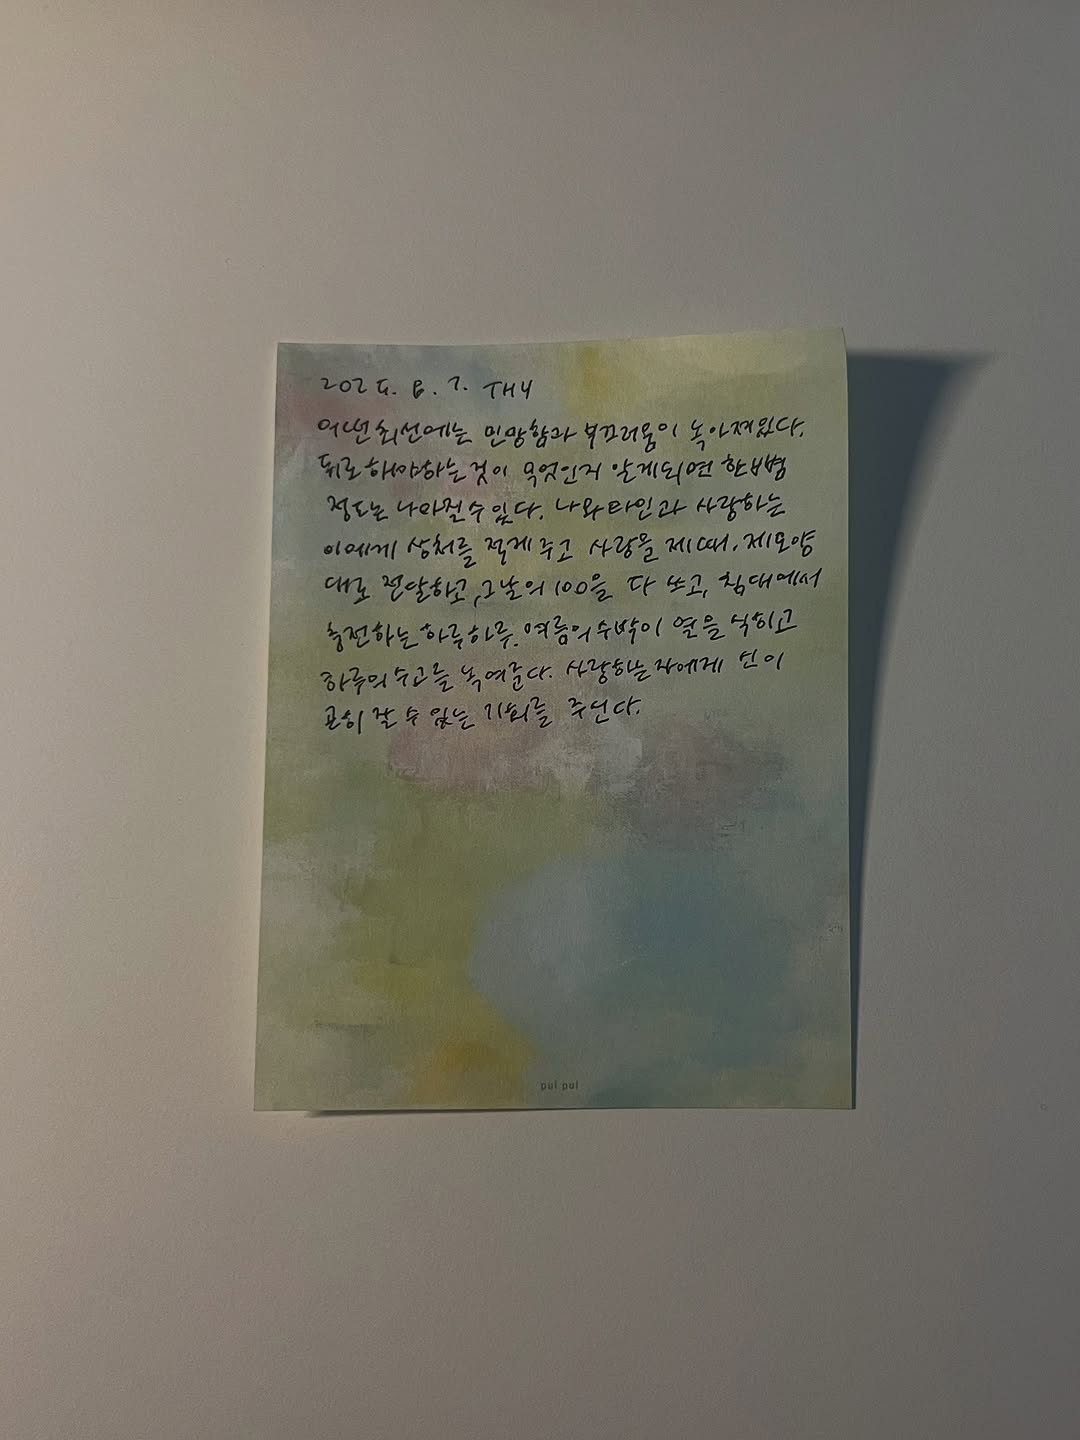 2025. 8. 7. THU
어떤 최선에는 민망함과 부끄러움이 녹아져있다.
뒤로 해야하는 것이 무엇인지 알게되면 한뼘
정도는 나아질 수 있다. 나와 타인과 사랑하는
이에게 상처를 적게 주고 사랑을 제때. 제모양
대로 전달하고, 그날의 100을 다 쓰고, 침대에서
충전하는 하루하루. 여름의 수박이 열을 식히고
하루의 수고를 녹여준다. 사랑하는 자에게 신이
곤히 잘 수 있는 기회를 주신다.
pul pul